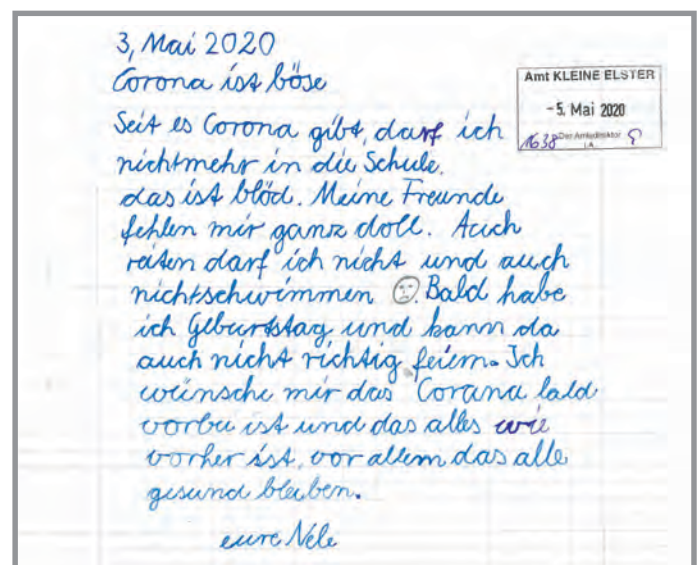 3, Mai 2020
Corona ist böse
Amt KLEINE ELSTER
- 5. Mai 2020
Der Amtsdirektor
i.A.
1638
Seit es Corona gibt, darf ich
nichtmehr in die Schule.
das ist blöd. Meine Freunde
fehlen mir ganz doll. Auch
reiten darf ich nicht und auch
nichtschwimmen ☹. Bald habe
ich Geburtstag und kann da
auch nicht richtig feiern. Ich
wünsche mir das Corana bald
vorbei ist und das alles wie
vorher ist, vor allem das alle
gesund bleiben.
eure Nele